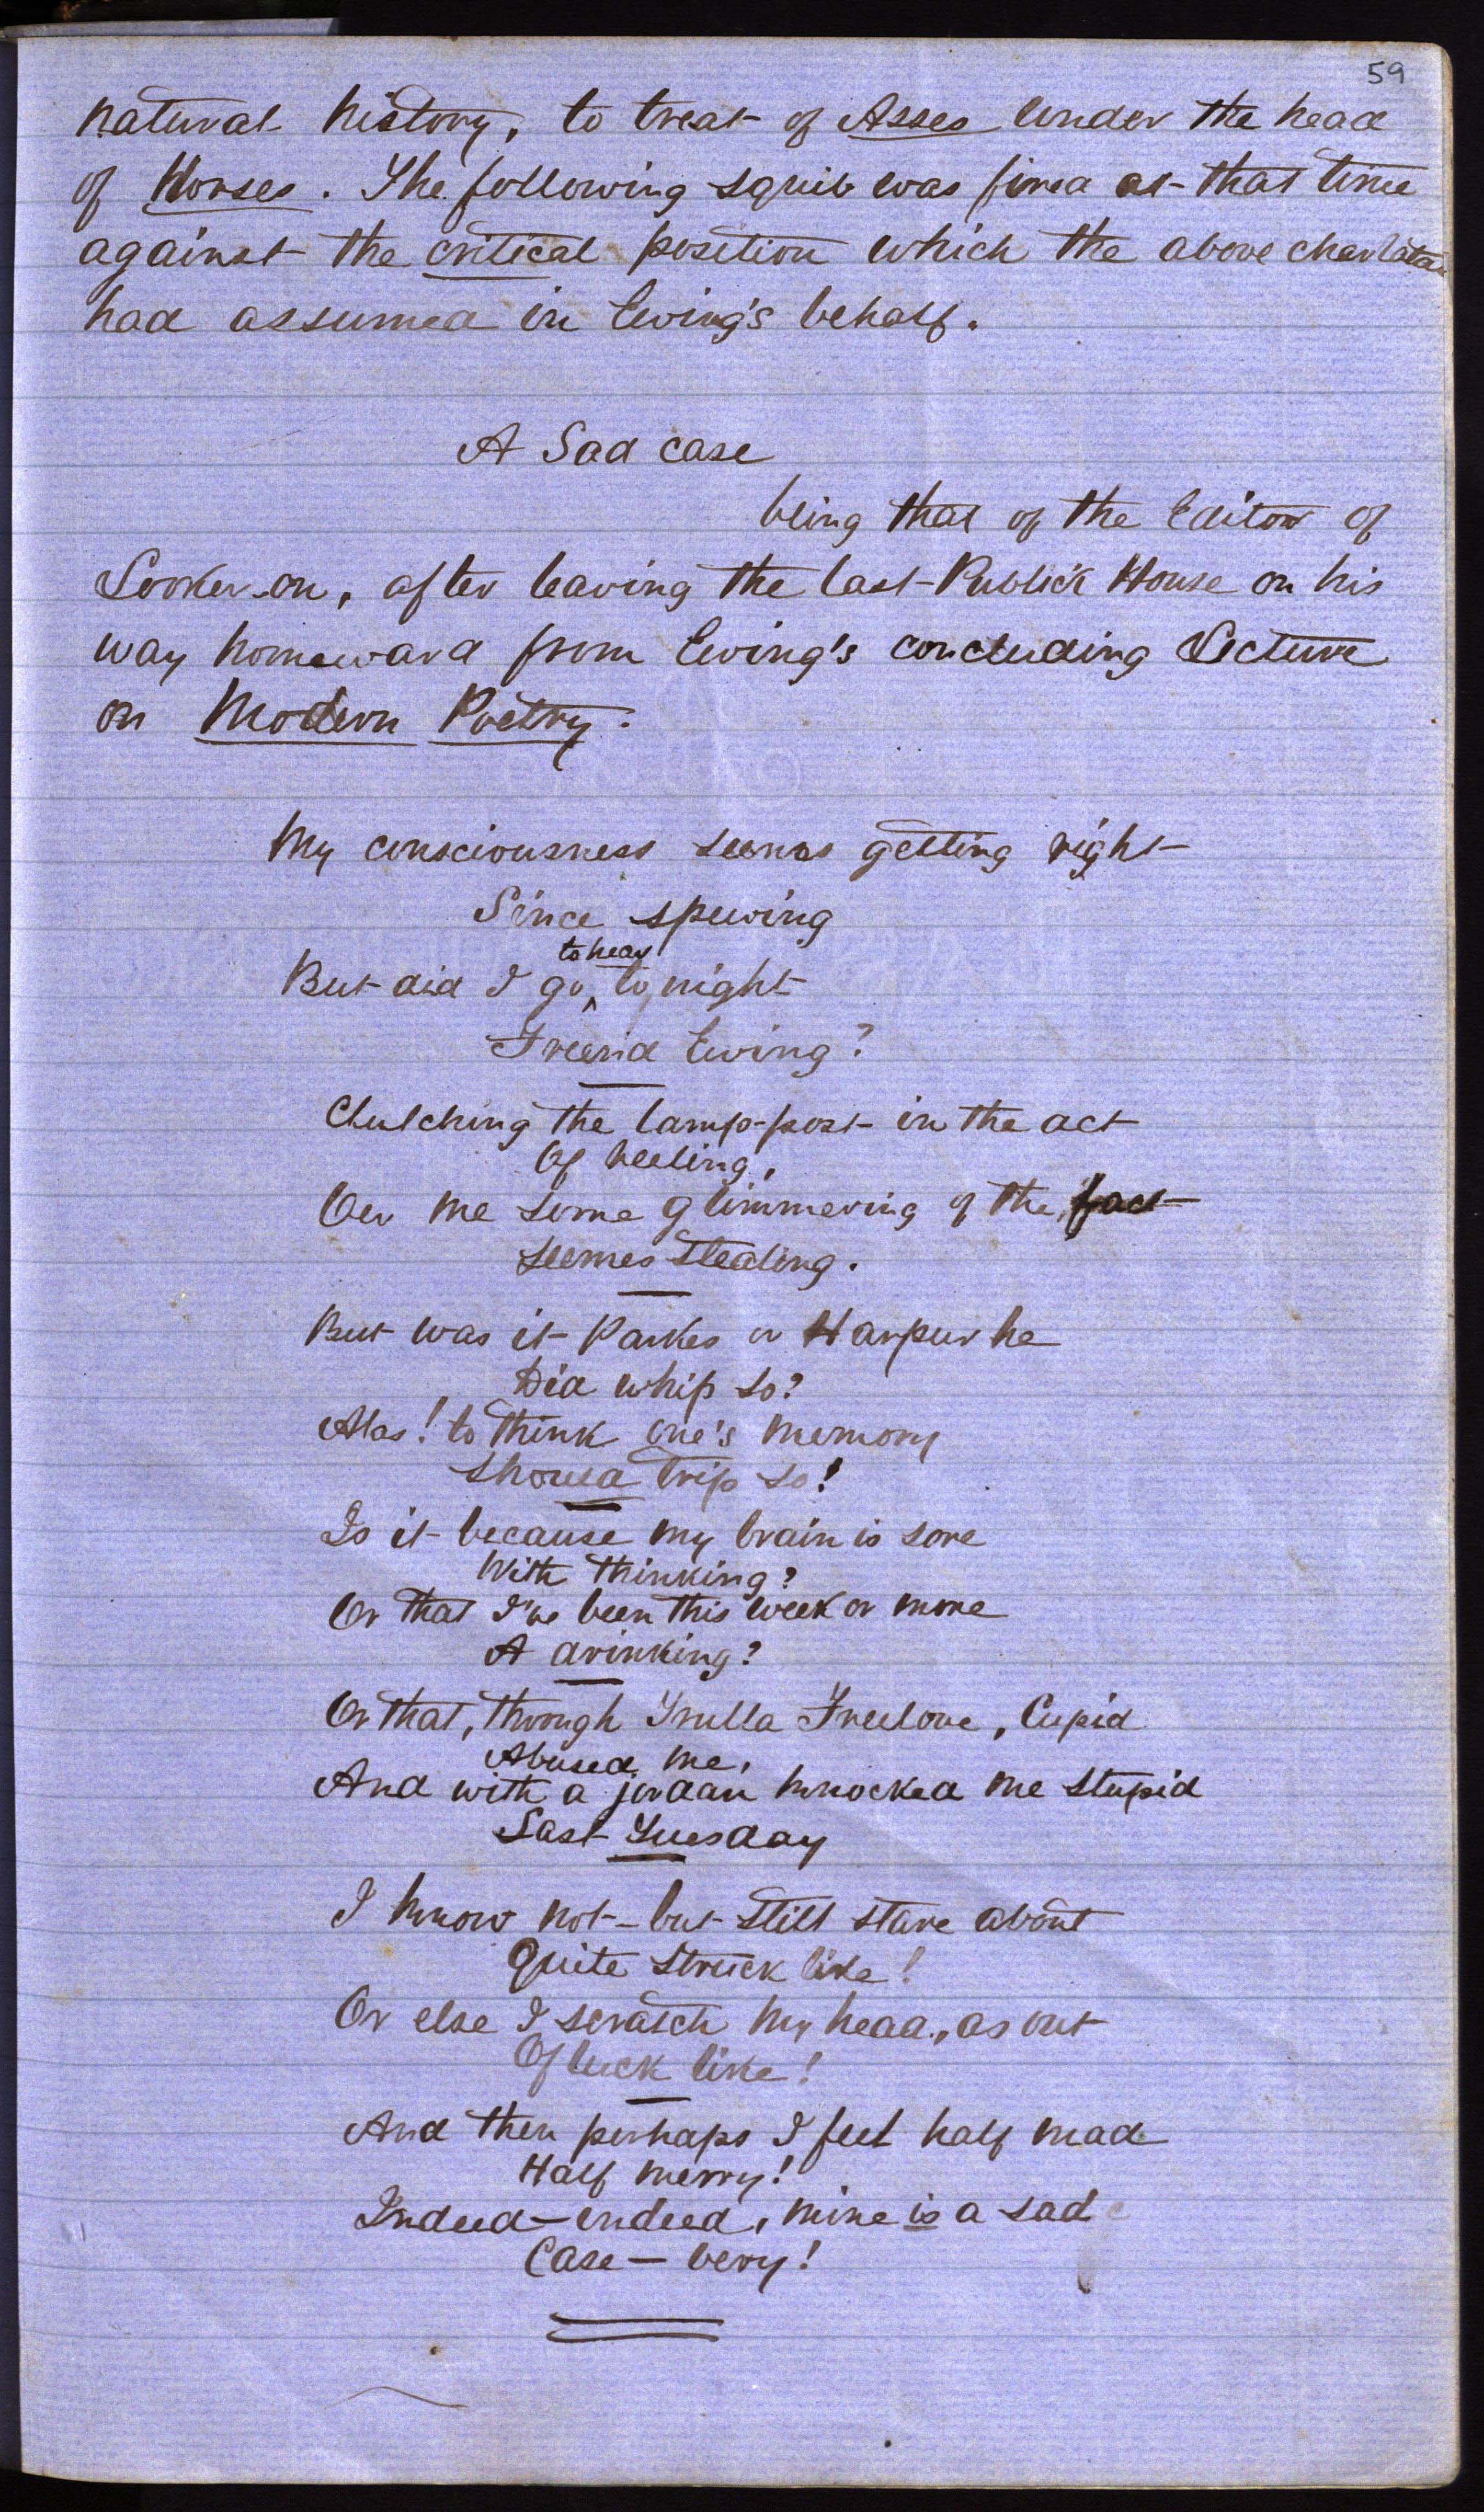 59
natural history, to treat of Asses under the head
of Horses. The following squib was fired at that time
against the critical position which the above charlatan
had assumed in Ewing's behalf.
A Sad case
being that of the Editor of
Looker-on, after leaving the last Publick House on his
way homeward from Ewing's concluding Lecture
on Modern Poetry.
My consciousness seems getting right
Since spewing
to hear
But did I go to night
Friend Ewing?
Clutching the lamp-post in the act
Of heeling,
Oer me some glimmering of the fact
seemes stealing.
But was it Parkes or Harpur he
Did whip so?
Alas! to think one's memory
Should trip so!
Is it because my brain is sore
With thinking?
Or that I've been this week or more
A drinking?
Or that, through Trulla Freelove, Cupid
Abused me,
And with a jordan knocked me stupid
Last Tuesday
I know not – but still stare about
Quite struck like!
Or else I scratch my head, as out
Of luck like!
And then perhaps I feel half mad
Half merry!
Indeed – indeed, mine is a sad
Case – very!